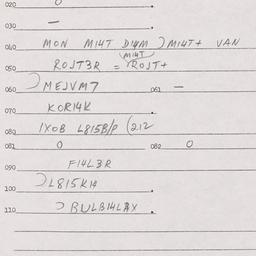 020 0
030 —
040 MON MI4T DI4M ) MI4T+ VAN
MI4T
050 ROJT3R = ROJT+
060 ) MEJVM7 061 —
070 KORI4K
080 IXOB L815B/P (212
081 0 082 0
090 FI4L3R
100 ) L815KI4
110 ) BULBI4L